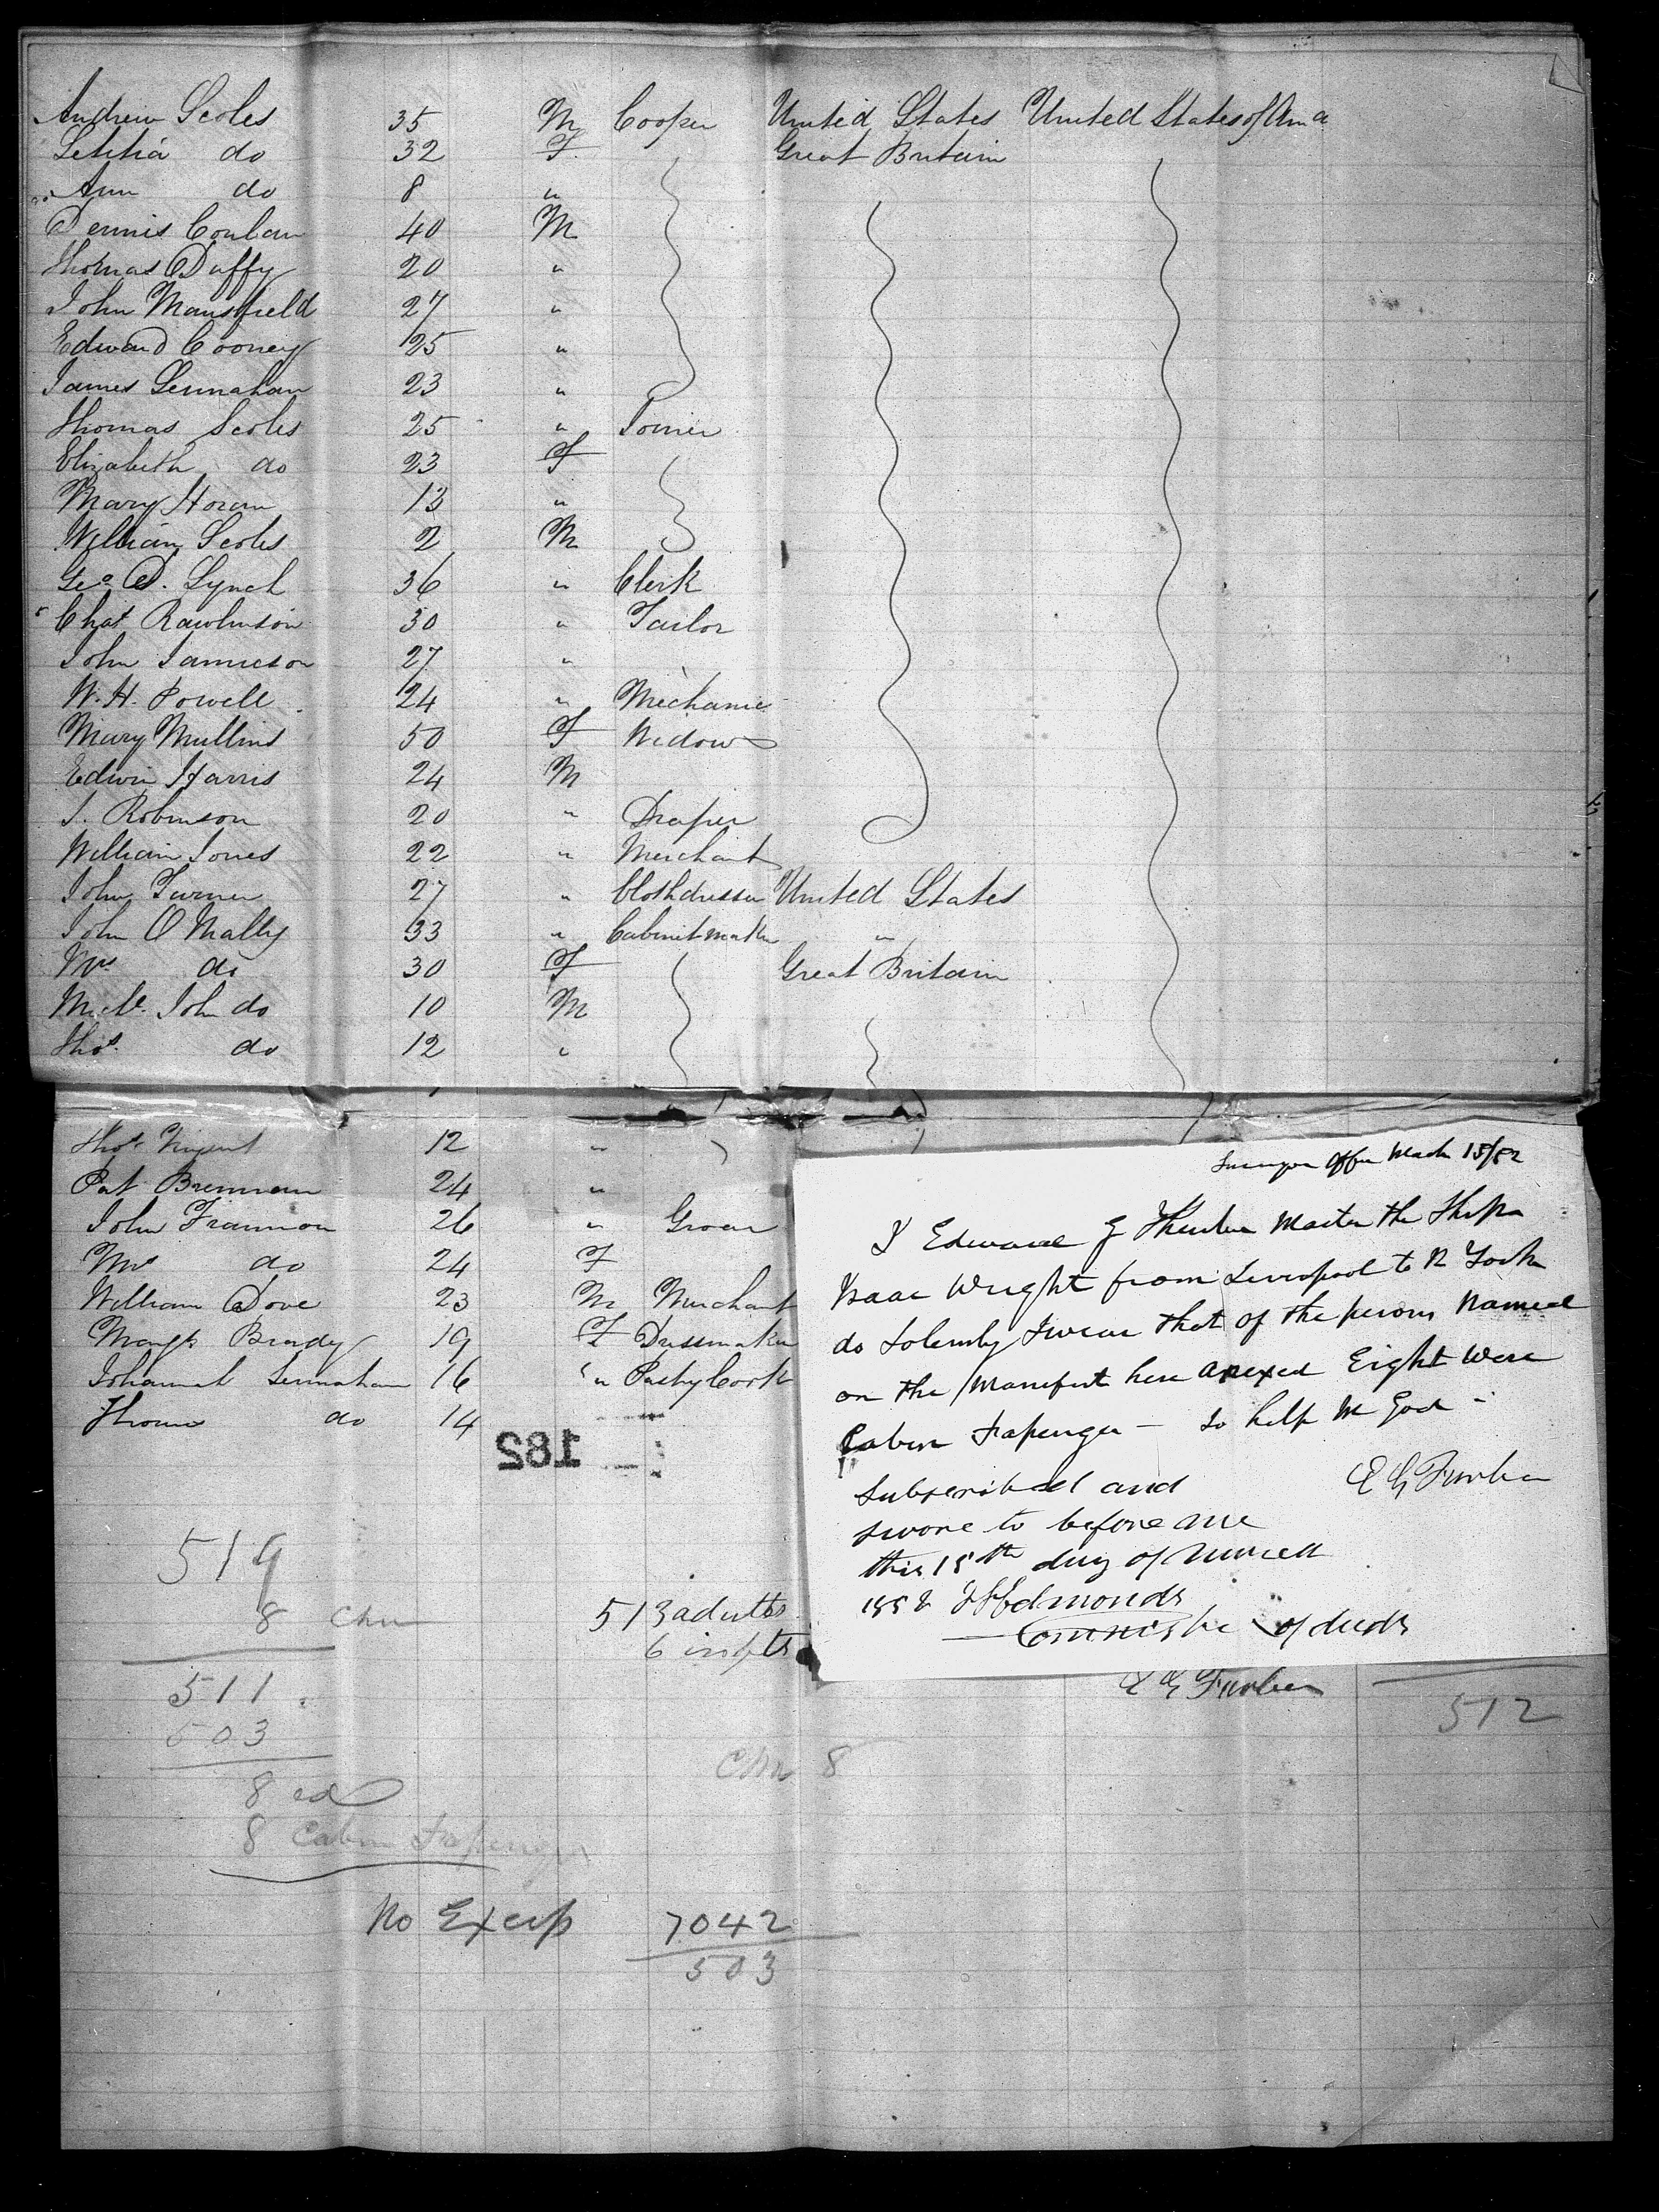 Andrew Scoles 35 M Cooper United States United States of Ama
Letitia do 32 F Great Britain
Ann do 8 "
Dennis Conlan 40 M
Thomas Duffy 20 "
John Mansfield 27 "
Edward Cooney 25 "
James Lennahan 23 "
Thomas Scoles 25 " Joiner
Elizabeth do 23 F
Mary Horan 13 "
William Scoles 2 M
Geo D. Lynch 36 " Clerk
Chas Rawlinson 30 " Tailor
John Jamieson 27 "
W. H. Powell 24 " Mechanic
Mary Mullins 50 F Widow
Edwin Harris 24 M
J. Robinson 20 " Draper
William Jones 22 " Merchant
John Turner 27 " Clothdresser United States
John O Mally 33 " Cabinetmaker "
Mrs do 30 F Great Britain
John do 10 M
Thos. do 12 "
Thos Nugent 12 "
Pat Brennan 24 "
John 26 " Grocer
Mrs do 24 F
William Dove 23 M Merchant
Margt Brady 19 F Dressmaker
Johannah Lennahan 16 " Pastry Cook
Thomas do 14
182
March 15/52
I Edward G Master the Ship
Isaac Wright from Liverpool to N York
do Solemnly Swear that of the persons Named
on the Manifest here anexed Eight Were
Cabin Passenger — So help Me God —
E G Furber
Subscribed and
swore to before me
this 15th day of March
1852 Edmonds
of deeds
E G Furber
519
8 Chn
511
503
8
8 Cabin Passenger
513 adults
6 infts
Chn 8
512
No Excep 7042
503